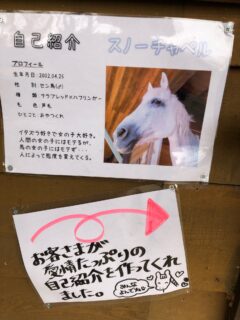 自己紹介 スノーチャペル
プロフィール
生年月日：2002.04.25
性　別：セン馬(♂)
種　類：クラブレッド×ハフリンガー
毛　色：芦毛
ひとこと：おやつくれ
イタズラ好きで女の子大好き。
人間の女の子にはモテるが、
馬の女の子にはモテず…
人によって態度を変えてくる。
お客さまが
愛情たっぷりの
自己紹介を作ってくれ
ました。
みんな
よんでネ!!